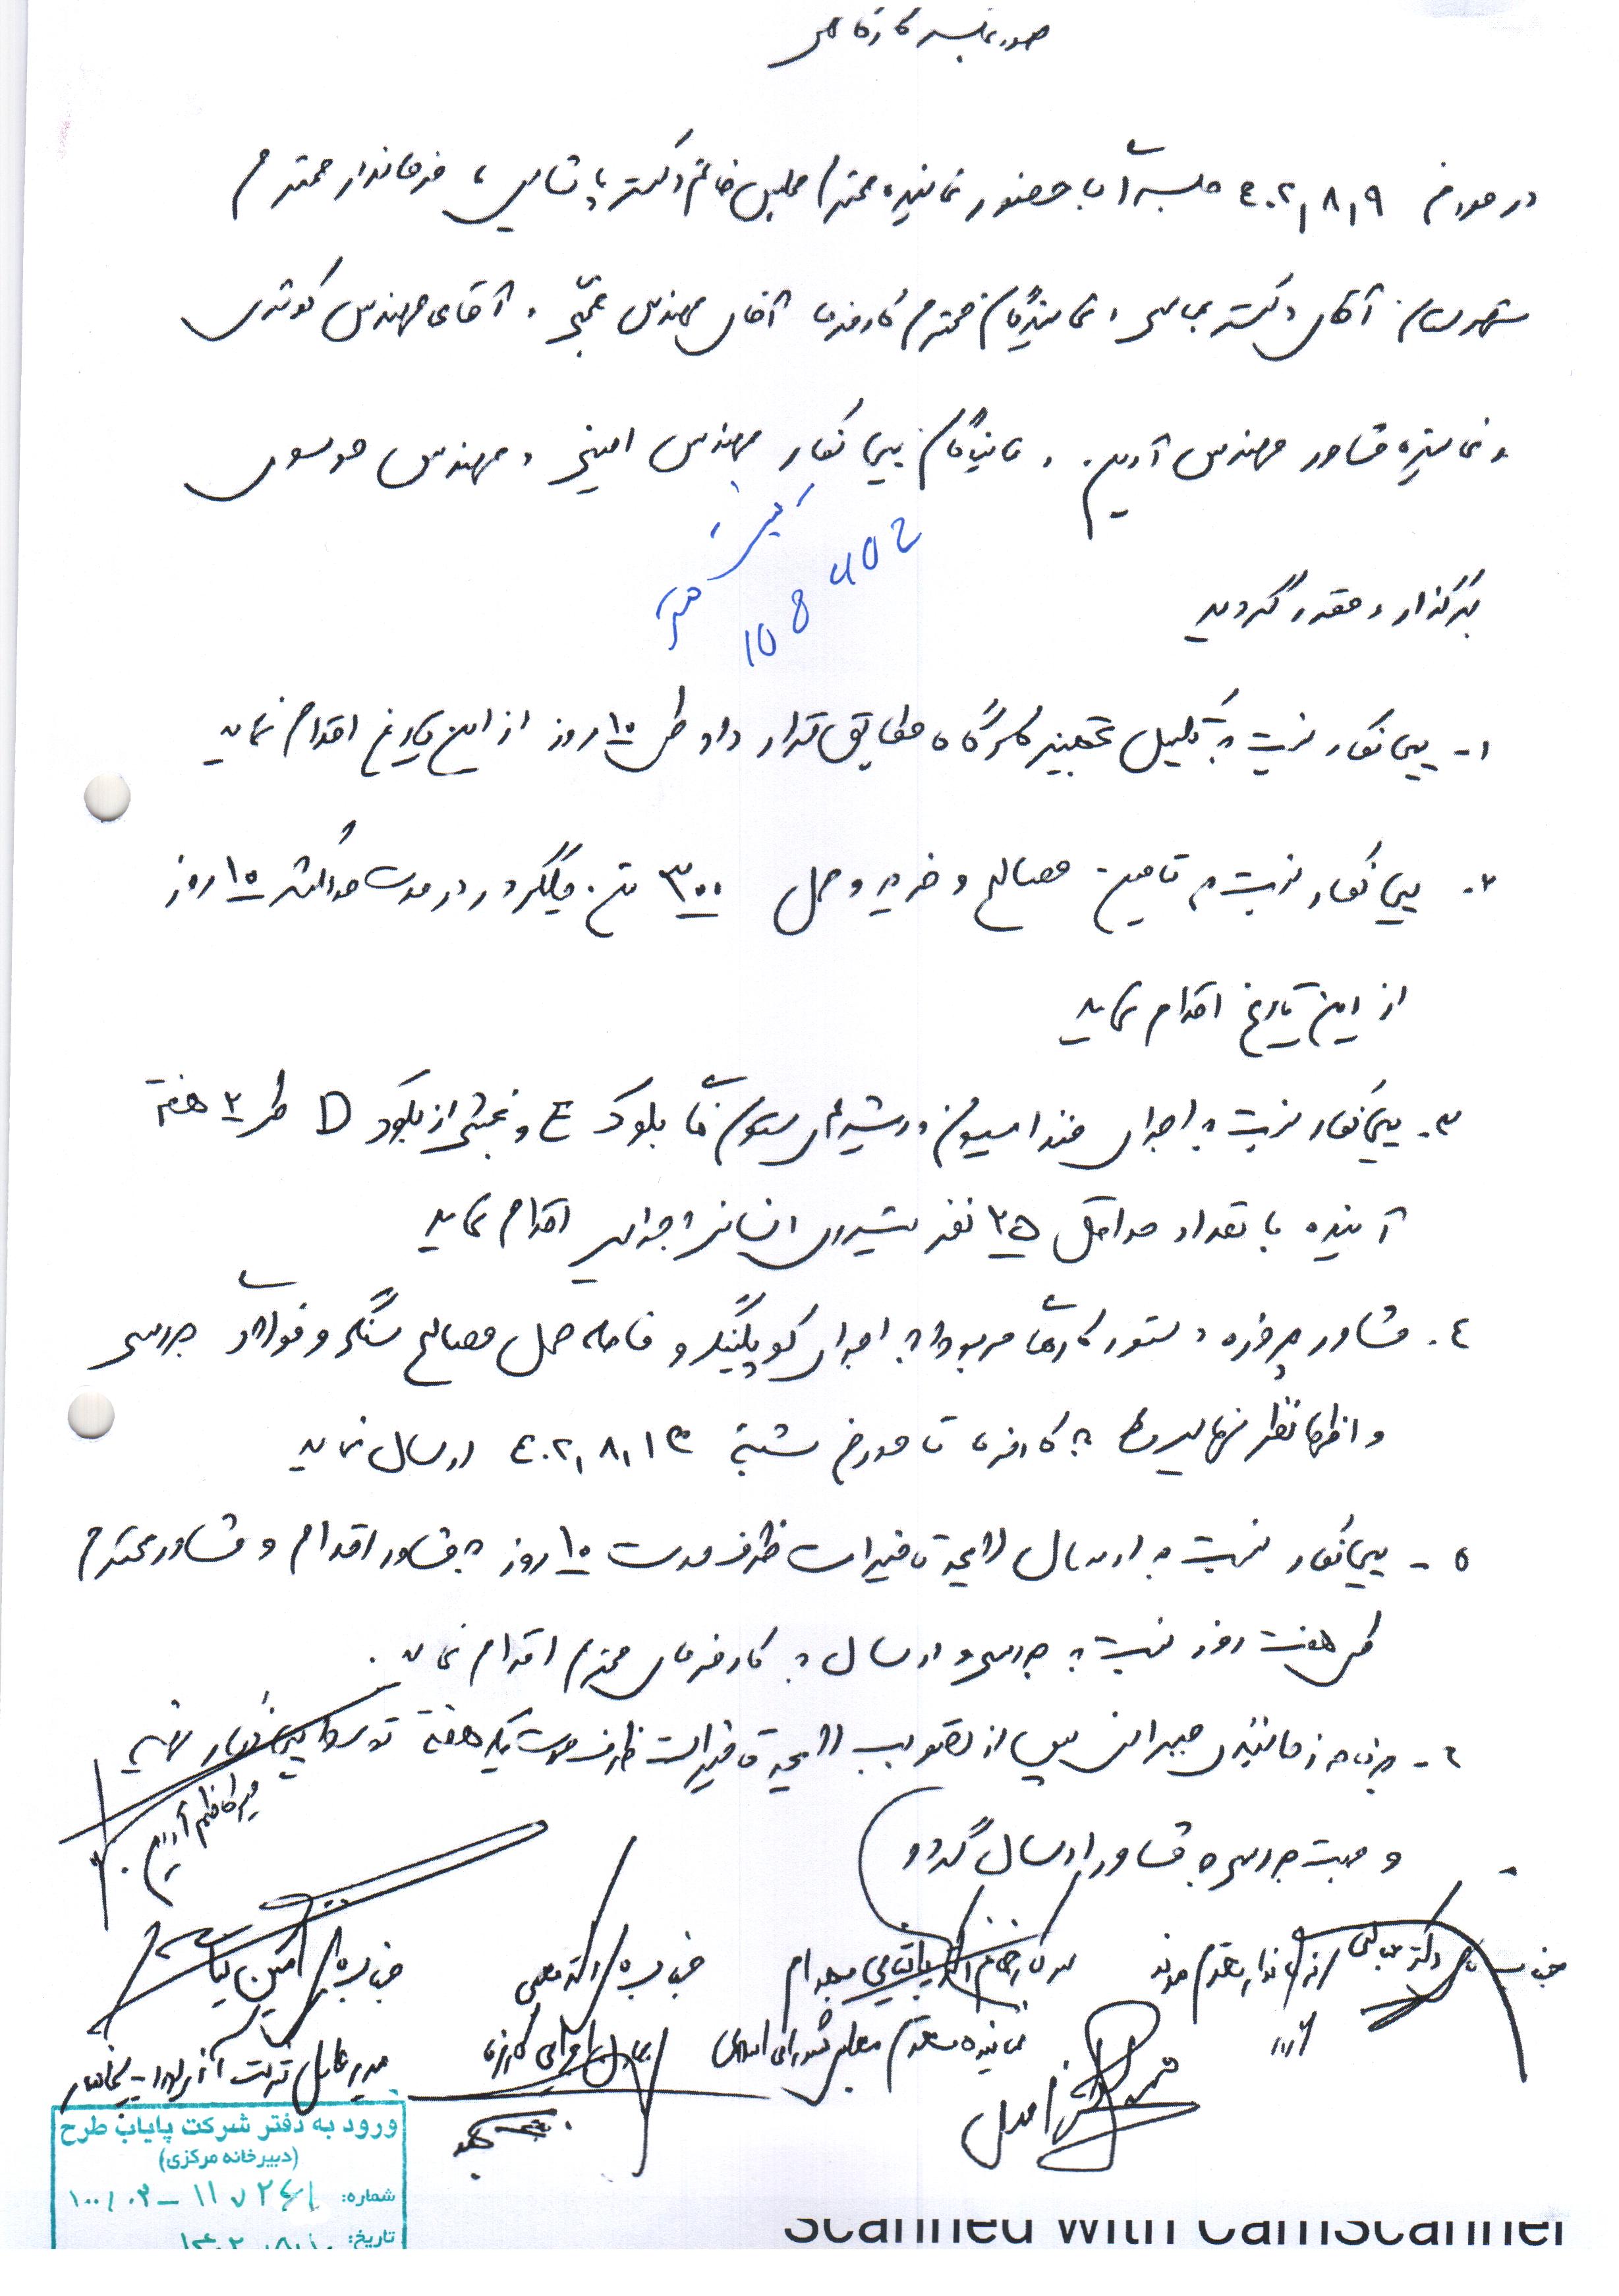 صورتجلسه کارگاهی
در مورخ ۴۰۲/۸/۹ جلسه‌ای با حضور نماینده محترم مجلس خانم دکتر پاشایی، فرماندار محترم
شهرستان آقای دکتر عباسی و نمایندگان محترم کارفرما آقای مهندس محبی و آقای مهندس کوثری
و نماینده مشاور مهندس آرین و نمایندگان پیمانکار مهندس امینی و مهندس موسوی
402 8 10
برگزار و مقرر گردید
۱- پیمانکار نسبت به تکمیل تجهیز کارگاه مطابق قرارداد طی ۱۰ روز از این تاریخ اقدام نماید
۲- پیمانکار نسبت به تامین مصالح و خرید و حمل ۳۰۰ تن میلگرد در مدت حداکثر ۱۵ روز
از این تاریخ اقدام نماید
۳- پیمانکار نسبت به اجرای فنداسیون و ریشه‌های ستون‌های بلوک E و بخشی از بلوک D طی ۲ هفته
آینده با تعداد حداقل ۲۵ نفر نیروی انسانی اجرایی اقدام نماید
۴- مشاور پروژه دستور کارهای مربوط به اجرای کوپلینگ و فاصله حمل مصالح سنگی و فولادی بررسی
و اظهار نظر نهایی را به کارفرما تا مورخ شنبه ۴۰۲/۸/۱۳ ارسال نماید
۵- پیمانکار نسبت به ارسال لایحه تاخیرات ظرف مدت ۱۰ روز به مشاور اقدام و مشاور محترم
طی هفت روز نسبت به بررسی و ارسال به کارفرمای محترم اقدام نماید.
۶- برنامه زمانبندی جبرانی پس از تصویب لایحه تاخیرات ظرف مدت یک هفته توسط پیمانکار تهیه
و جهت بررسی به مشاور ارسال گردد
میرکاظم آرین
جناب آقای دکتر عباسی فرماندار محترم
سرکار خانم دکتر پاشایی
جناب آقای دکتر
جناب آقای امین
نماینده محترم مجلس شورای اسلامی
معاون اجرایی کارفرما
مدیرعامل شرکت
ورود به دفتر شرکت پایاب طرح
(دبیرخانه مرکزی)
شماره:
تاریخ:
Scanned with CamScanner